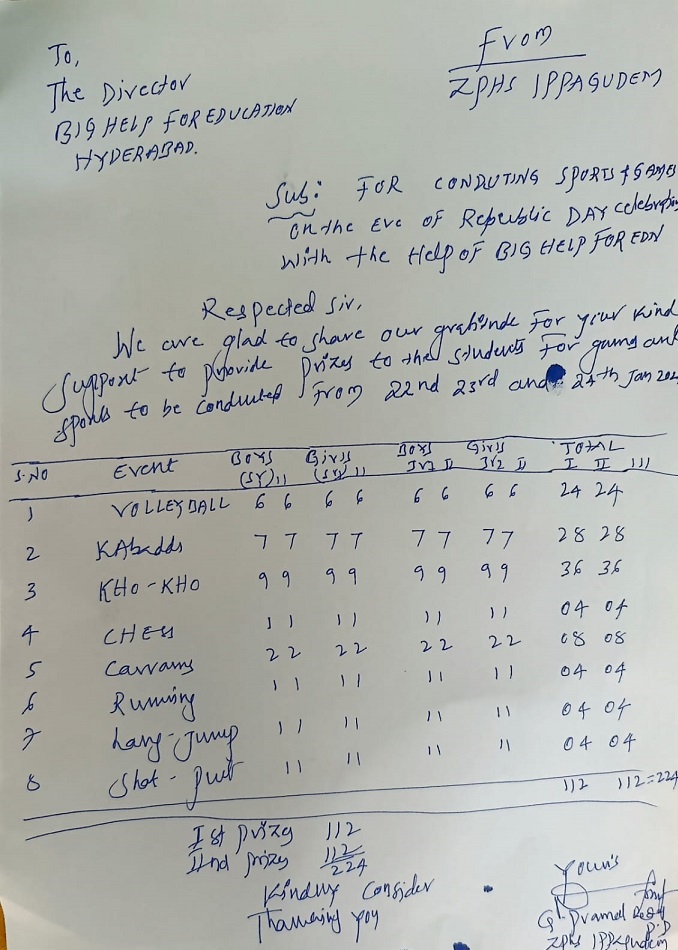 From
ZPHS IPPAGUDEM
To,
The Director
BIG HELP FOR EDUCATION
HYDERABAD.
Sub: FOR CONDUTING SPORTS & GAMES
on the Eve of Republic DAY celebration
With the Help of BIG HELP FOR EDN
Respected sir,
We are glad to share our gratitude For your kind
Support to provide Prizes to the students For games and
sports to be conducted From 22nd 23rd and 24th Jan
S.NO Event Boys (Sr) I II Girls (Sr) I II Boys Jr I II Girls Jr I II TOTAL I II III
1 VOLLEYBALL 6 6 6 6 6 6 6 6 24 24
2 KAbadds 7 7 7 7 7 7 7 7 28 28
3 KHO-KHO 9 9 9 9 9 9 9 9 36 36
4 CHESS 1 1 1 1 1 1 1 1 04 04
5 Carroms 2 2 2 2 2 2 2 2 08 08
6 Running 1 1 1 1 1 1 1 1 04 04
7 Long-Jump 1 1 1 1 1 1 1 1 04 04
8 Shot-Putt 1 1 1 1 1 1 1 1 04 04
112 112=224
Ist prizes 112
IInd prizes 112
224
Kindly Consider
Thanking you
Yours
G. Pramod Reddy
P.D
ZPHS IPPAgudem